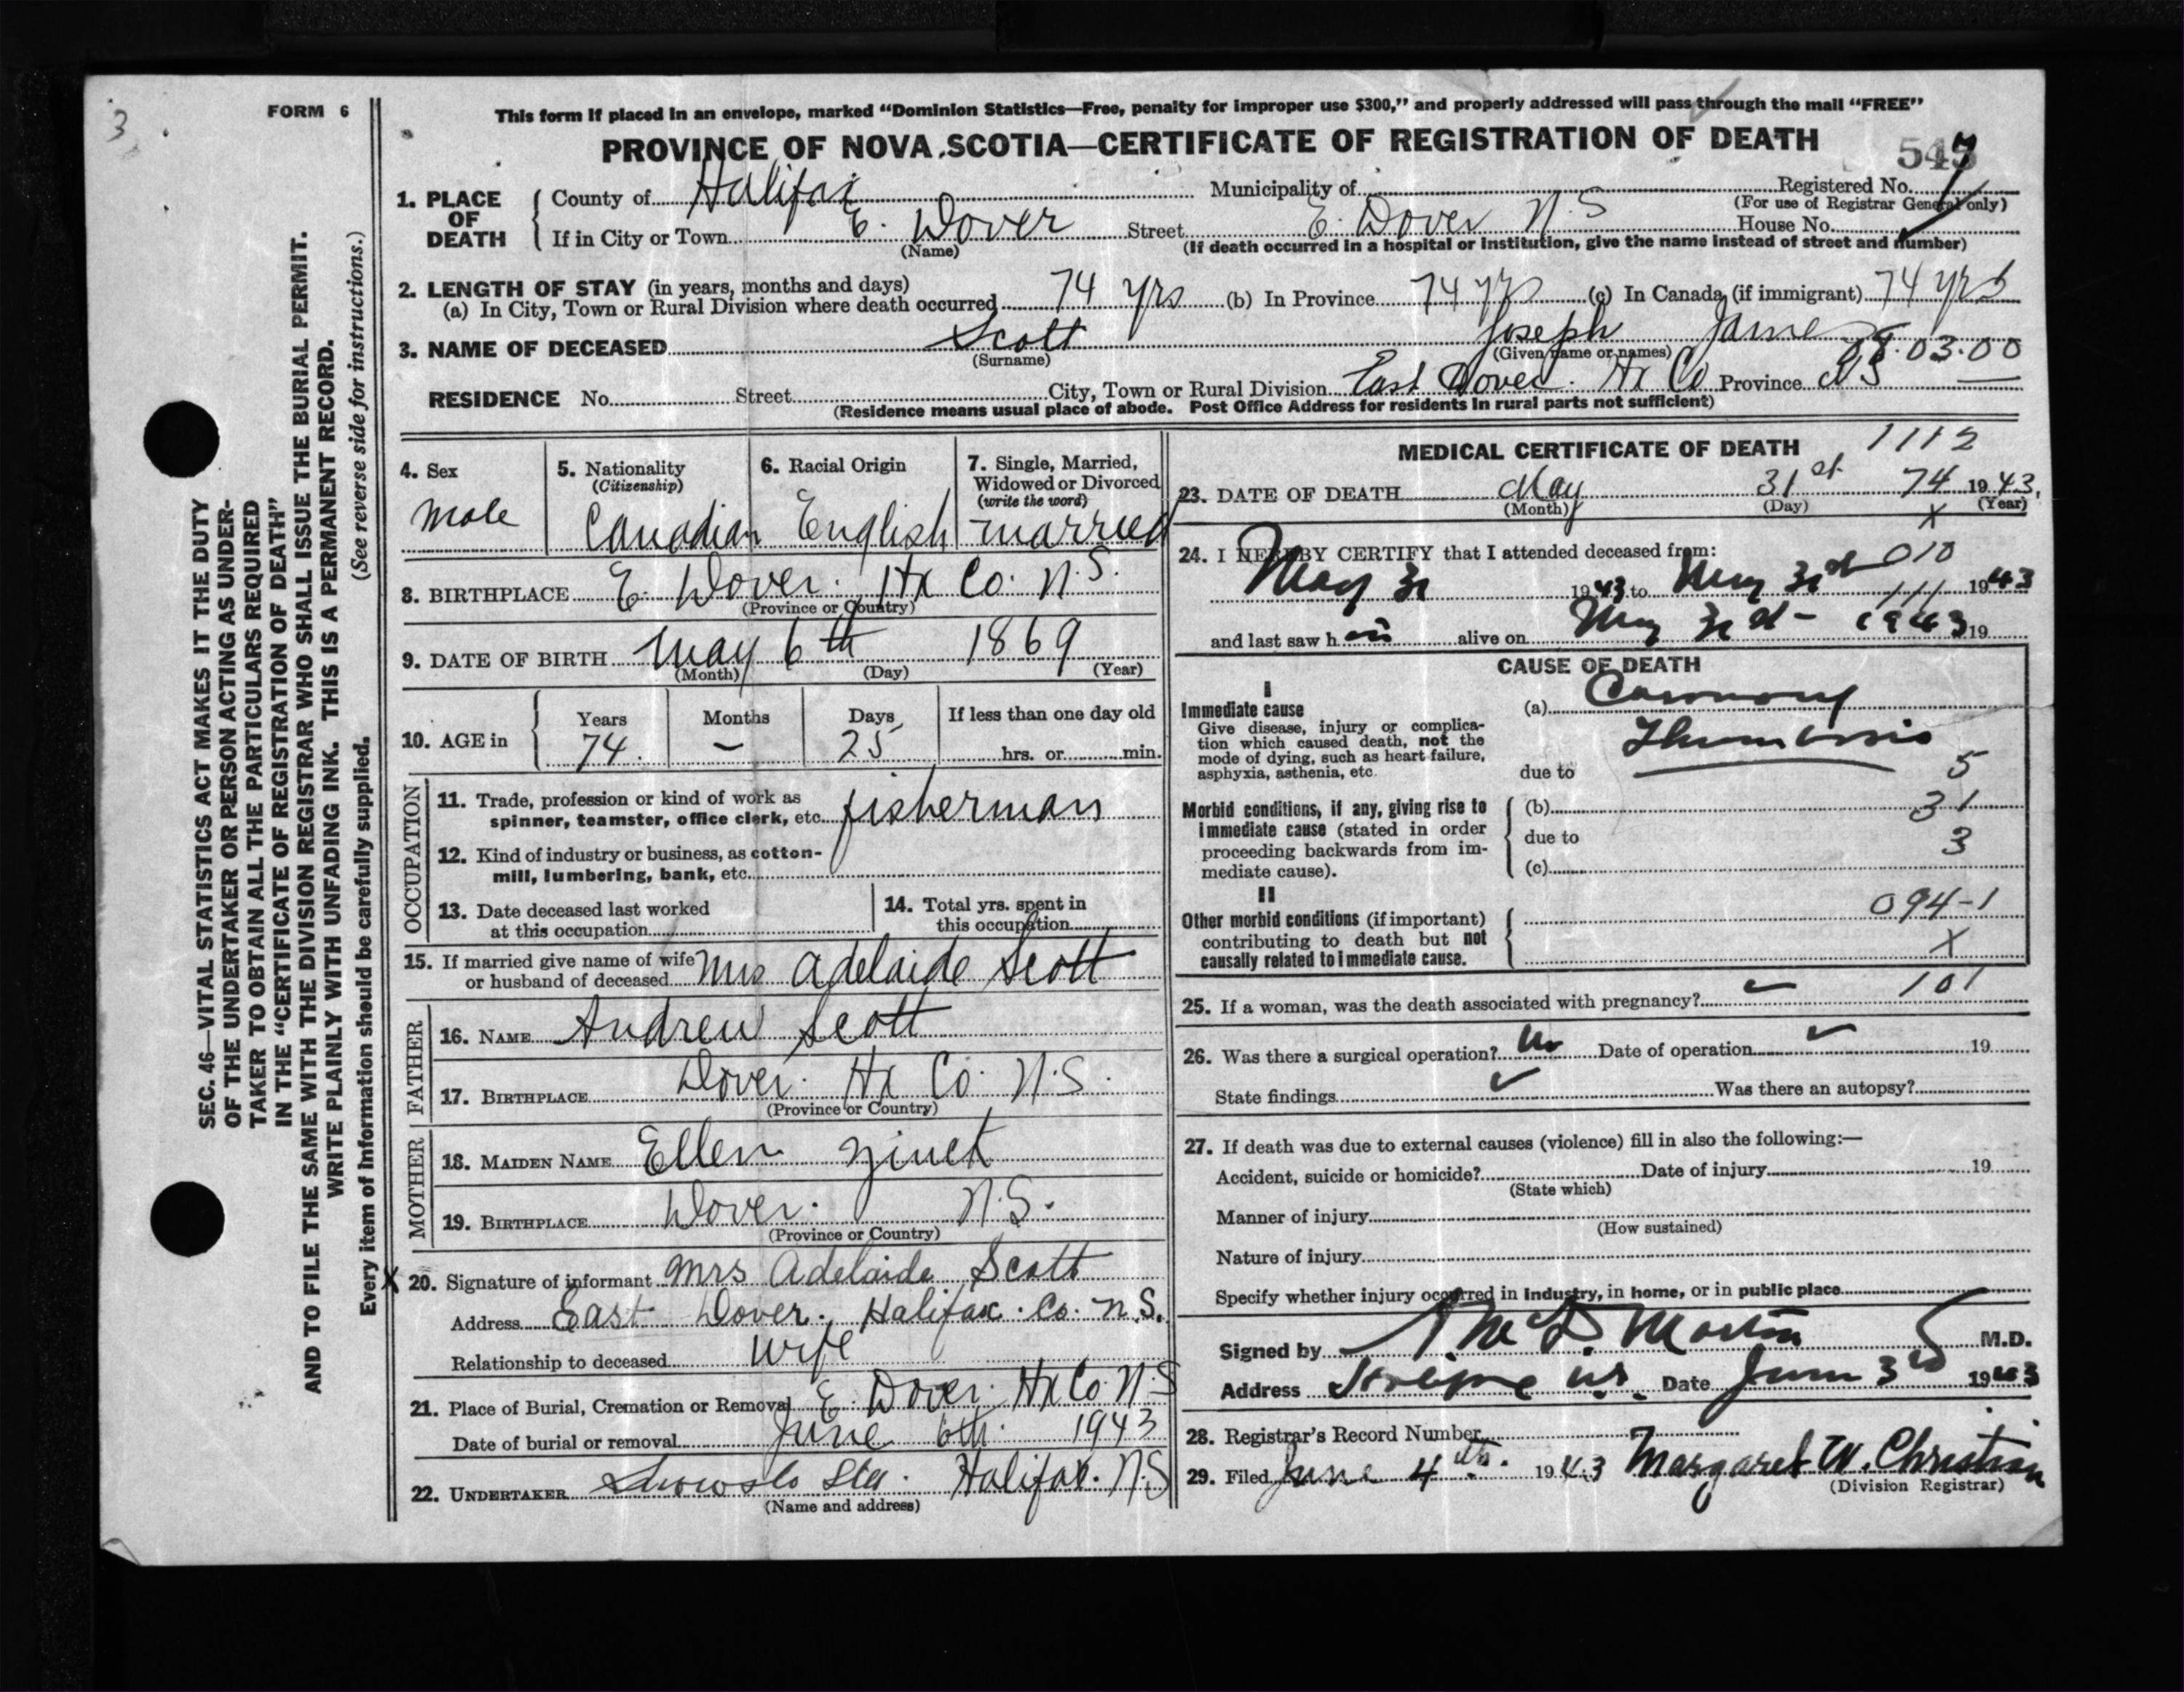 3
FORM 6
This form if placed in an envelope, marked “Dominion Statistics—Free, penalty for improper use $300,” and properly addressed will pass through the mail “FREE”
PROVINCE OF NOVA SCOTIA—CERTIFICATE OF REGISTRATION OF DEATH
547
1. PLACE OF DEATH
County of Halifax Municipality of Registered No.
(For use of Registrar General only)
If in City or Town E. Dover Street E. Dover N.S House No.
(Name) (If death occurred in a hospital or institution, give the name instead of street and number)
2. LENGTH OF STAY (in years, months and days)
(a) In City, Town or Rural Division where death occurred 74 yrs (b) In Province 74 yrs (c) In Canada (if immigrant) 74 yrs
3. NAME OF DECEASED Scott Joseph James
(Surname) (Given name or names) 08.03.00
RESIDENCE No. Street City, Town or Rural Division East Dover. Hx Co Province NS
(Residence means usual place of abode. Post Office Address for residents in rural parts not sufficient)
4. Sex
male
5. Nationality
(Citizenship)
Canadian
6. Racial Origin
English
7. Single, Married,
Widowed or Divorced
(write the word)
married
8. BIRTHPLACE E. Dover. Hx Co. N.S.
(Province or Country)
9. DATE OF BIRTH May 6th 1869
(Month) (Day) (Year)
10. AGE in
Years Months Days If less than one day old
74. – 25 hrs. or min.
OCCUPATION
11. Trade, profession or kind of work as
spinner, teamster, office clerk, etc. fisherman
12. Kind of industry or business, as cotton-
mill, lumbering, bank, etc.
13. Date deceased last worked
at this occupation
14. Total yrs. spent in
this occupation
15. If married give name of wife
or husband of deceased Mrs Adelaide Scott
FATHER
16. NAME Andrew Scott
17. BIRTHPLACE Dover. Hx Co. N.S.
(Province or Country)
MOTHER
18. MAIDEN NAME Ellen Zinck
19. BIRTHPLACE Dover. N.S.
(Province or Country)
X 20. Signature of informant Mrs Adelaide Scott
Address East Dover. Halifax. Co. N.S.
Relationship to deceased wife
21. Place of Burial, Cremation or Removal E. Dover. Hx Co. N.S
Date of burial or removal June 6th. 1943
22. UNDERTAKER Halifax. N.S
(Name and address)
MEDICAL CERTIFICATE OF DEATH 1112
23. DATE OF DEATH May 31st 74 1943.
(Month) (Day) (Year)
X
24. I HEREBY CERTIFY that I attended deceased from: 010
May 31 1943 to May 31st 111 1943
and last saw h im alive on May 31st – 1943 19
CAUSE OF DEATH
I
Immediate cause
Give disease, injury or complica-
tion which caused death, not the
mode of dying, such as heart failure,
asphyxia, asthenia, etc.
(a) Coronary
Thrombosis
due to 5
Morbid conditions, if any, giving rise to
immediate cause (stated in order
proceeding backwards from im-
mediate cause).
(b) 31
due to 3
(c)
II
Other morbid conditions (if important)
contributing to death but not
causally related to immediate cause.
094-1
X
25. If a woman, was the death associated with pregnancy? 101
26. Was there a surgical operation? No Date of operation 19
State findings Was there an autopsy?
27. If death was due to external causes (violence) fill in also the following:—
Accident, suicide or homicide? Date of injury 19
(State which)
Manner of injury
(How sustained)
Nature of injury
Specify whether injury occurred in industry, in home, or in public place
Signed by Morton M.D.
Address N.S. Date June 3rd 1943
28. Registrar's Record Number
29. Filed June 4th. 1943 Margaret W. Christian
(Division Registrar)
SEC. 46—VITAL STATISTICS ACT MAKES IT THE DUTY
OF THE UNDERTAKER OR PERSON ACTING AS UNDER-
TAKER TO OBTAIN ALL THE PARTICULARS REQUIRED
IN THE “CERTIFICATE OF REGISTRATION OF DEATH”
AND TO FILE THE SAME WITH THE DIVISION REGISTRAR WHO SHALL ISSUE THE BURIAL PERMIT.
WRITE PLAINLY WITH UNFADING INK. THIS IS A PERMANENT RECORD.
(See reverse side for instructions.)
Every item of information should be carefully supplied.